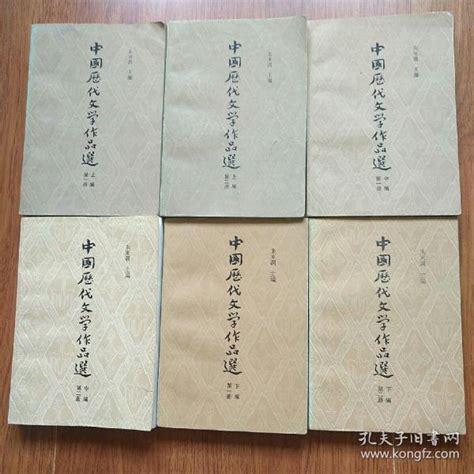 朱東潤 主編
中國歷代文学作品選
上編
第一册
朱東潤 主編
中國歷代文学作品選
上編
第二册
朱東潤 主編
中國歷代文学作品選
中編
第一册
朱東潤 主編
中國歷代文学作品選
中編
第二册
朱東潤 主編
中國歷代文学作品選
下編
第一册
朱東潤 主編
中國歷代文学作品選
下編
第二册
孔夫子旧书网
www.kongfz.com